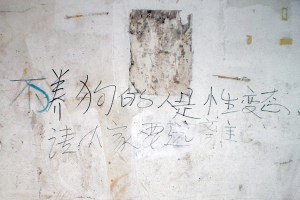 不养狗的人是性变态
请大家